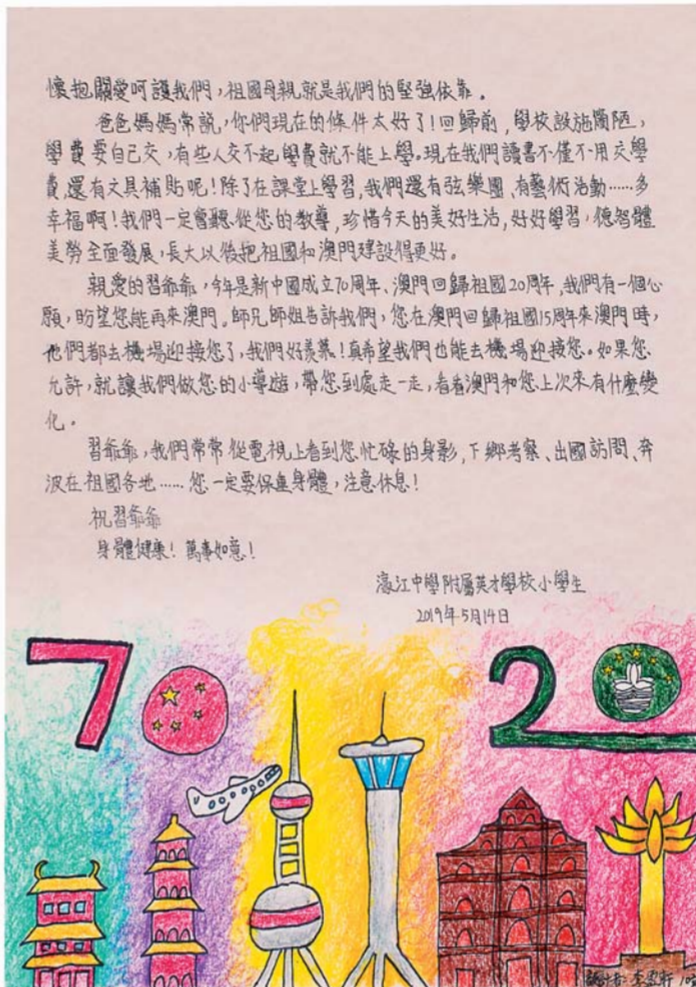 懷抱關愛呵護我們，祖國母親就是我們的堅強依靠。
爸爸媽媽常說，你們現在的條件太好了！回歸前，學校設施簡陋，
學費要自己交，有些人交不起學費就不能上學。現在我們讀書不僅不用交學
費，還有文具補貼呢！除了在課堂上學習，我們還有弦樂團、有藝術活動……多
幸福啊！我們一定會聽從您的教導，珍惜今天的美好生活，好好學習，德智體
美勞全面發展，長大以後把祖國和澳門建設得更好。
親愛的習爺爺，今年是新中國成立70周年、澳門回歸祖國20周年，我們有一個心
願，盼望您能再來澳門。師兄師姐告訴我們，您在澳門回歸祖國15周年來澳門時，
他們都去機場迎接您了，我們好羨慕！真希望我們也能去機場迎接您。如果您
允許，就讓我們做您的小導遊，帶您到處走一走，看看澳門和您上次來有什麼變
化。
習爺爺，我們常常從電視上看到您忙碌的身影，下鄉考察、出國訪問、奔
波在祖國各地……您一定要保重身體，注意休息！
祝習爺爺
身體健康！萬事如意！
濠江中學附屬英才學校小學生
2019年5月14日
70
20
設計者：李